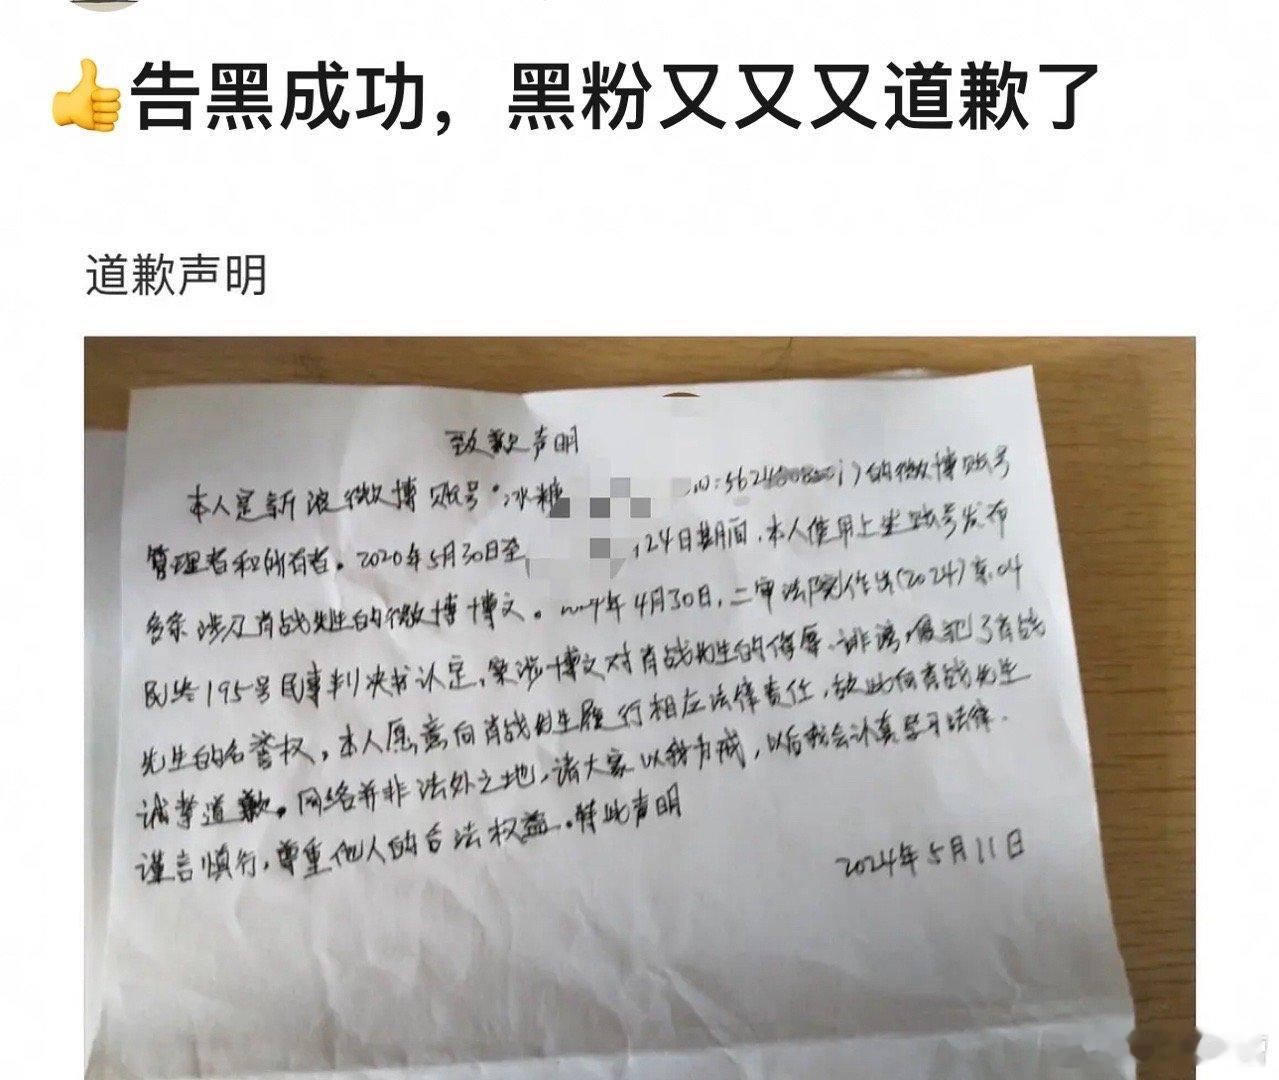 👍告黑成功，黑粉又又又道歉了
道歉声明
致歉声明
本人是新浪微博账号"冰糖 的微博账号
管理者和所有者。2020年5月30日至 24日期间，本人使用上述账号发布
多条涉及肖战先生的微博博文。 年4月30日，二审法院作出(2024)京04
民终195号民事判决书认定，案涉博文对肖战先生的侮辱、诽谤，侵犯了肖战
先生的名誉权，本人愿意向肖战先生履行相应法律责任，故此向肖战先生
诚挚道歉。网络并非法外之地，请大家以我为戒，以后我会认真学习法律．
谨言慎行，尊重他人的合法权益．特此声明
2024年5月11日